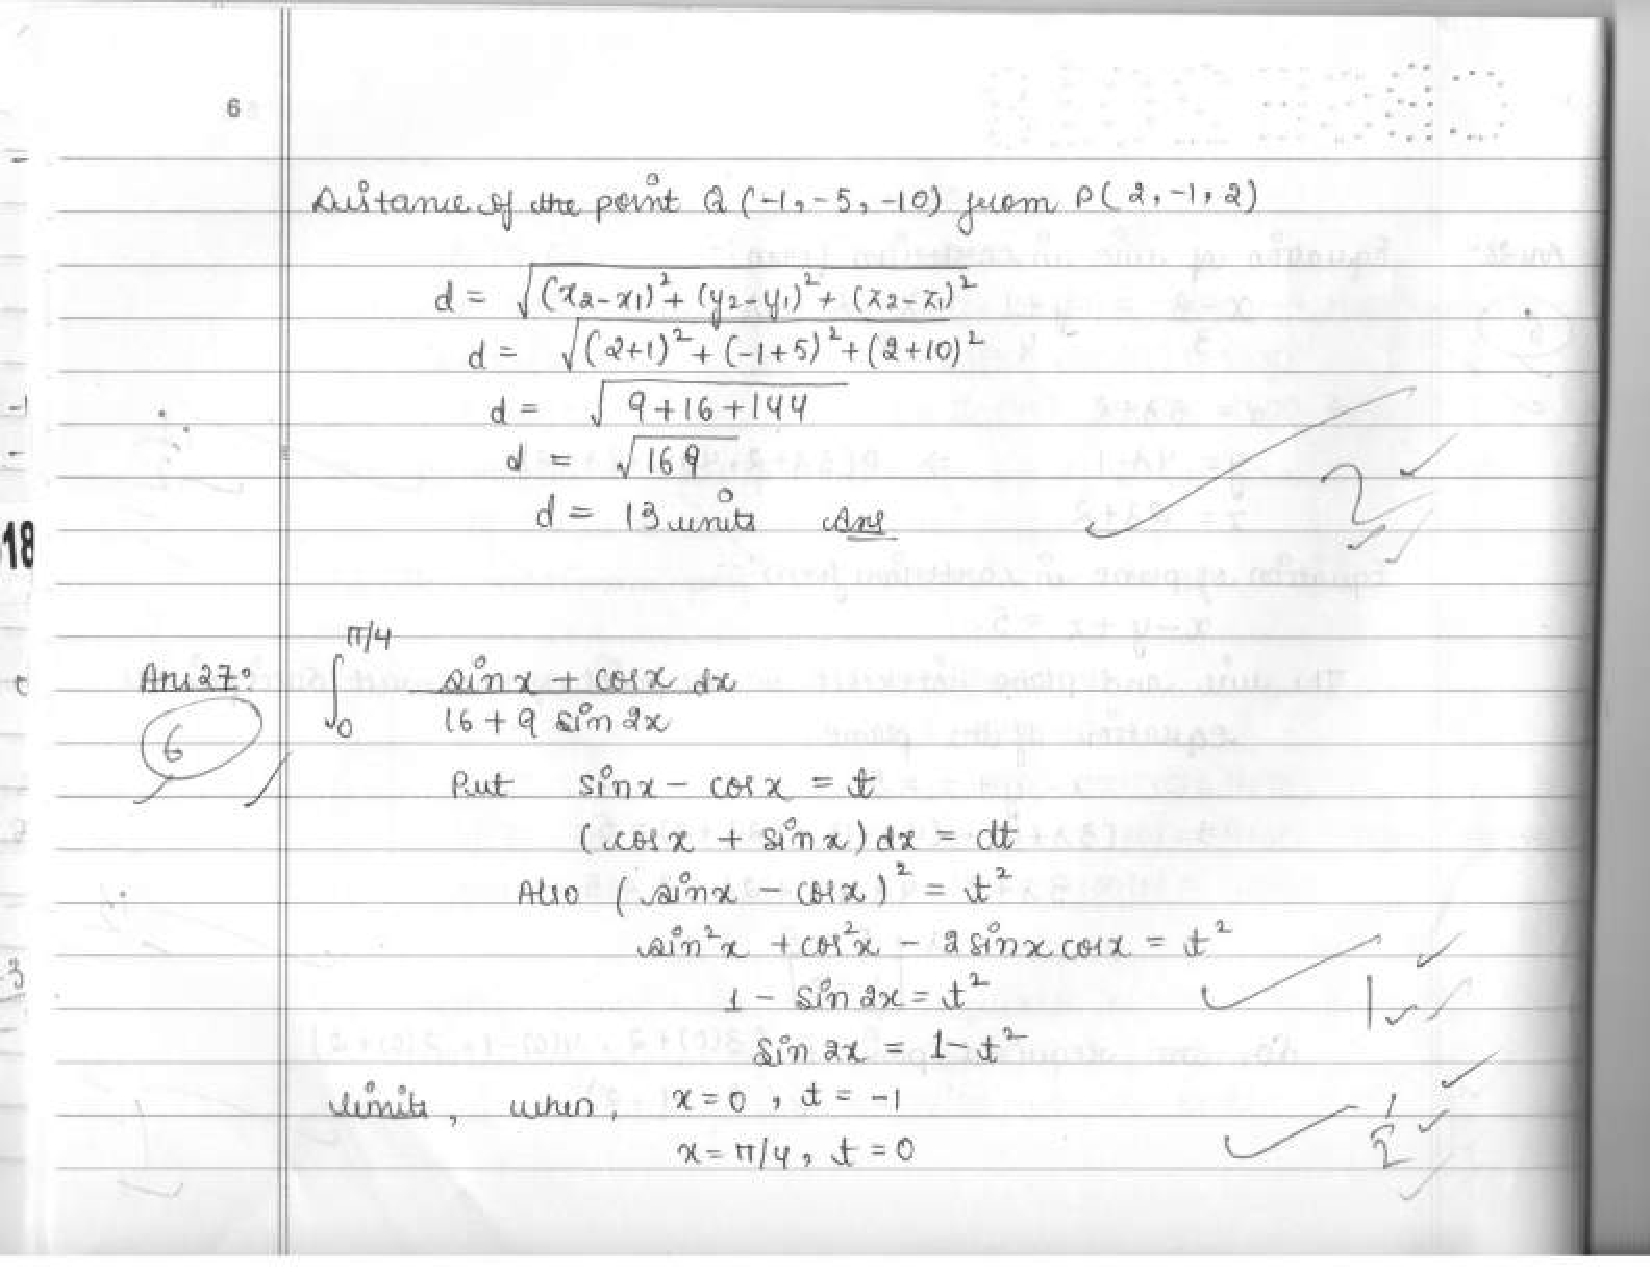 6
Distance of the point Q (-1, -5, -10) from P(2, -1, 2)
d = √(x2-x1)² + (y2-y1)² + (z2-z1)²
d = √(2+1)² + (-1+5)² + (2+10)²
d = √9+16+144
d = √169
d = 13 units Ans
2
18
π/4
Ans 27: ∫0 sinx + cosx dx
16 + 9 sin 2x
6
Put sinx - cosx = t
(cosx + sinx) dx = dt
Also (sinx - cosx)² = t²
sin²x + cos²x - 2 sinx cosx = t²
1 - sin 2x = t²
1
sin 2x = 1-t²
limits, when, x=0, t = -1
1/2
x = π/4, t = 0